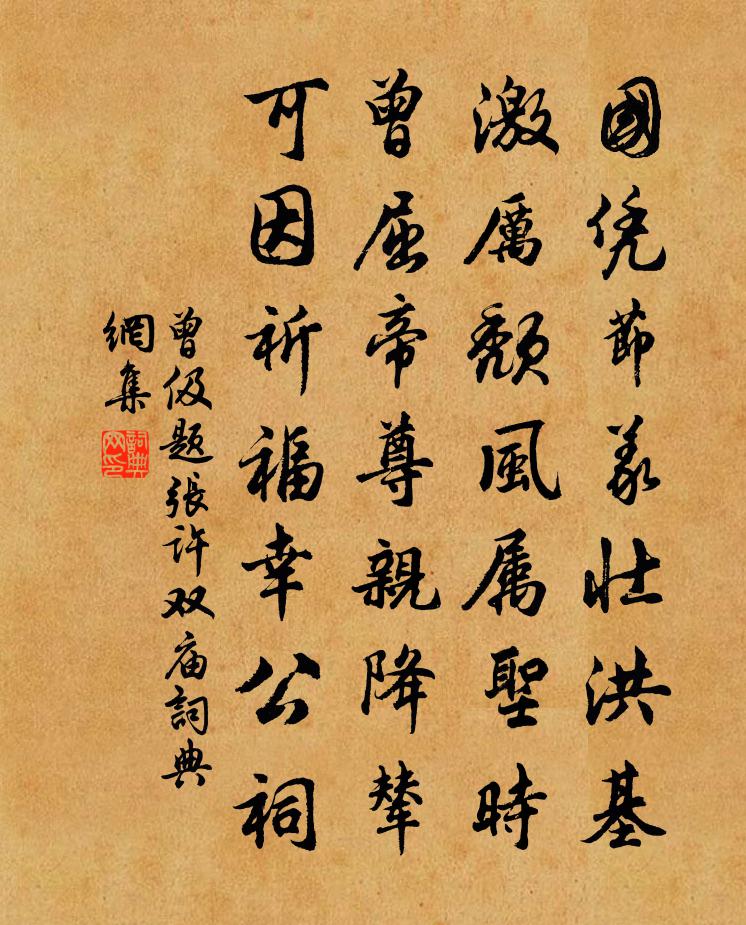 國凭節義壯洪基
激厲頹風属聖時
曾屈帝尊親降輦
可因祈福幸公祠
曾伋題張許双庙詞典
網集
詞典
网印